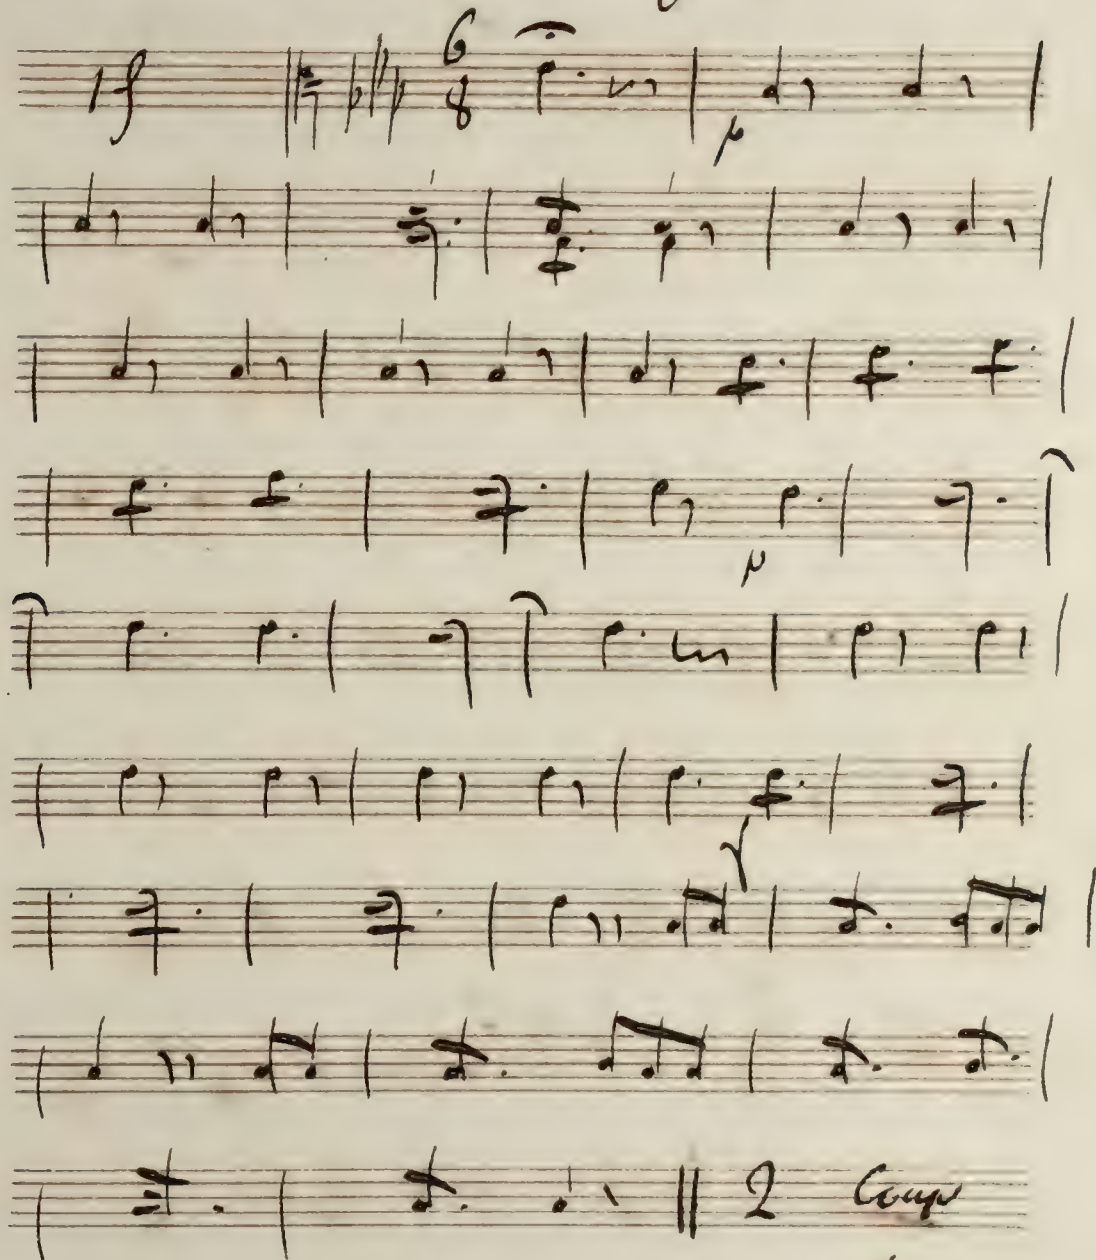 1 f
6
8
p
p
2 Coup